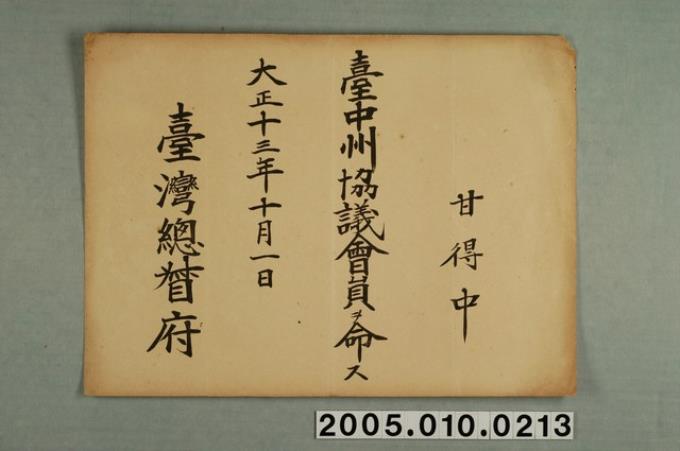 甘得中
臺中州協議會員ヲ命ス
大正十三年十月一日
臺灣總督府
2005.010.0213